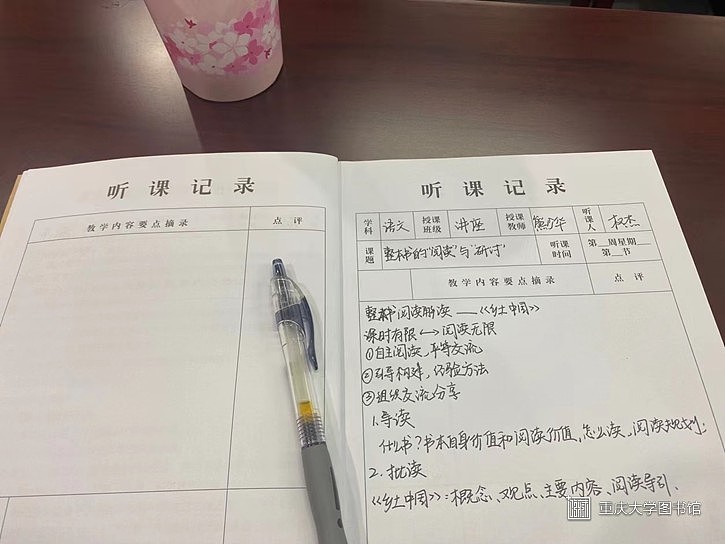 听课记录
教学内容要点摘录 点评
听课记录
学科 语文 授课班级 讲座 授课教师 熊万华 听课人 权杰
课题 整本书的“阅读”与“研讨” 听课时间 第__周星期__ 第__节
教学内容要点摘录 点评
整本书阅读解读——《乡土中国》
课时有限↔阅读无限
①自主阅读,平等交流
②引导构建,经验方法
③组织交流分享
1.导读
什么书?书本自身价值和阅读价值,怎么读,阅读规划;
2.批读
《乡土中国》:概念、观点、主要内容、阅读导引.
重庆大学图书馆